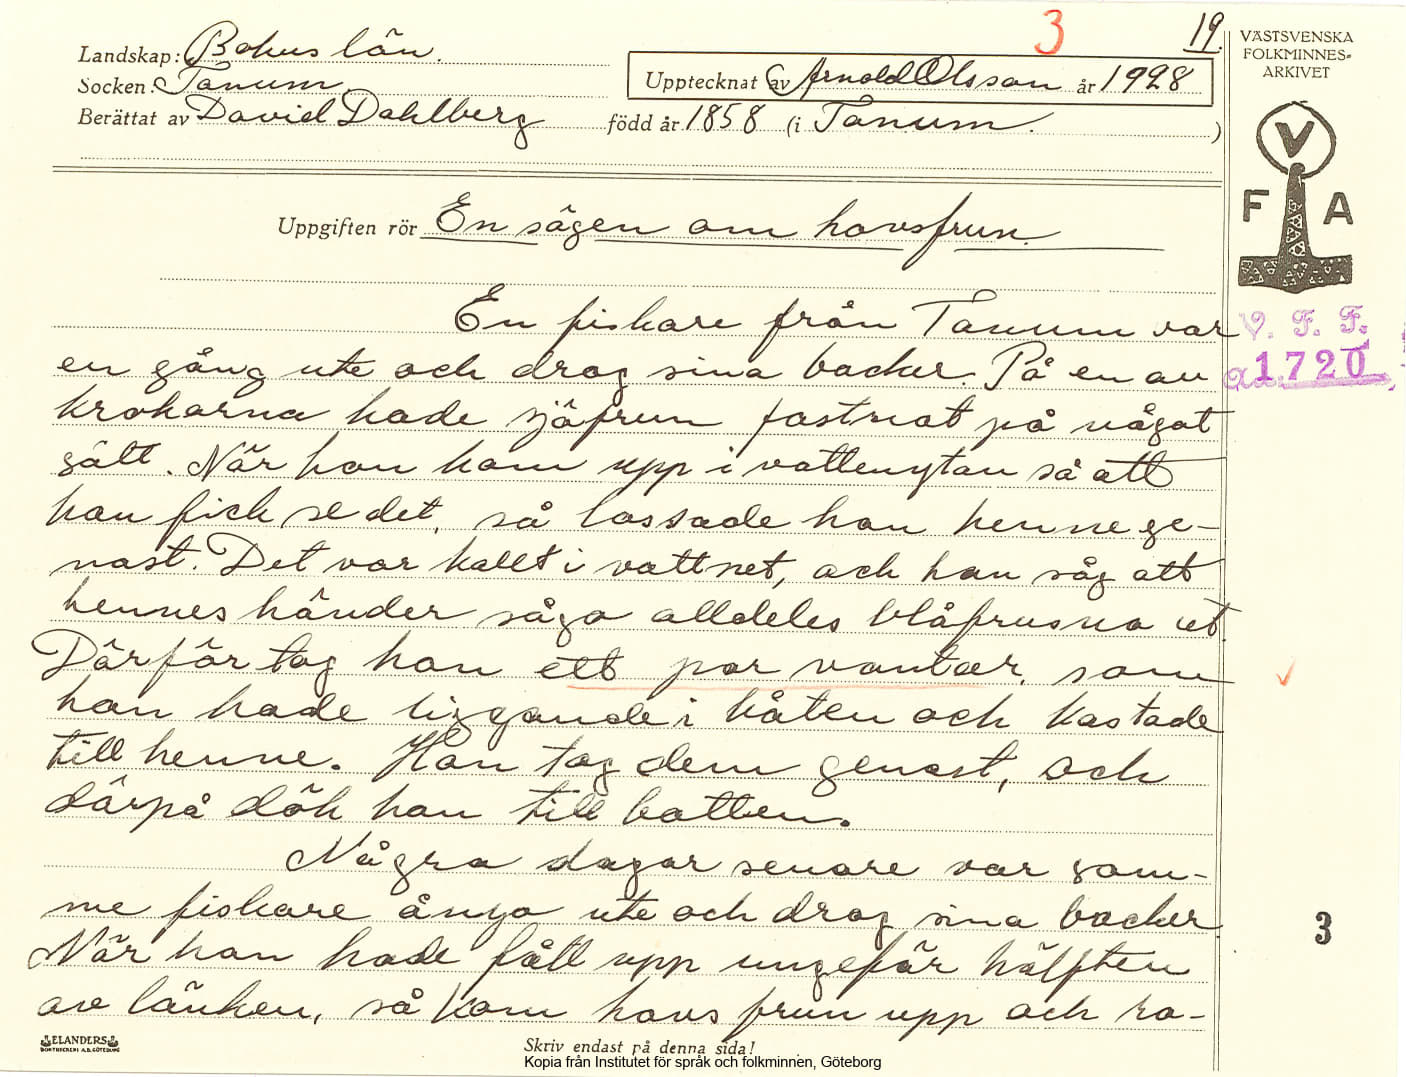 3
19.
Landskap: Bohus län.
Socken: Tanum
Upptecknat av Arnold Olsson år 1928
Berättat av David Dahlberg född år 1858 (i Tanum. )
VÄSTSVENSKA
FOLKMINNES-
ARKIVET
V
F A
Uppgiften rör En sägen om havsfrun.
V. F. F.
1720
En fiskare från Tanum var
en gång ute och drog sina backor. På en av
krokarna hade sjöfrun fastnat på något
sätt. När hon kom upp i vattenytan så att
han fick se det, så lossade han henne ge-
nast. Det var kallt i vattnet, och han såg att
hennes händer sågo alldeles blåfrusna ut.
Därför tog han ett par vantar, som
han hade liggande i båten och kastade
till henne. Hon tog dem genast, och
därpå dök hon till botten.
Några dagar senare var sam-
me fiskare ånyo ute och drog sina backor
När han hade fått upp ungefär hälften
av länken, så kom havsfrun upp och ro-
3
ELANDERS
BOKTRYCKERI A.B. GÖTEBORG
Skriv endast på denna sida!
Kopia från Institutet för språk och folkminnen, Göteborg